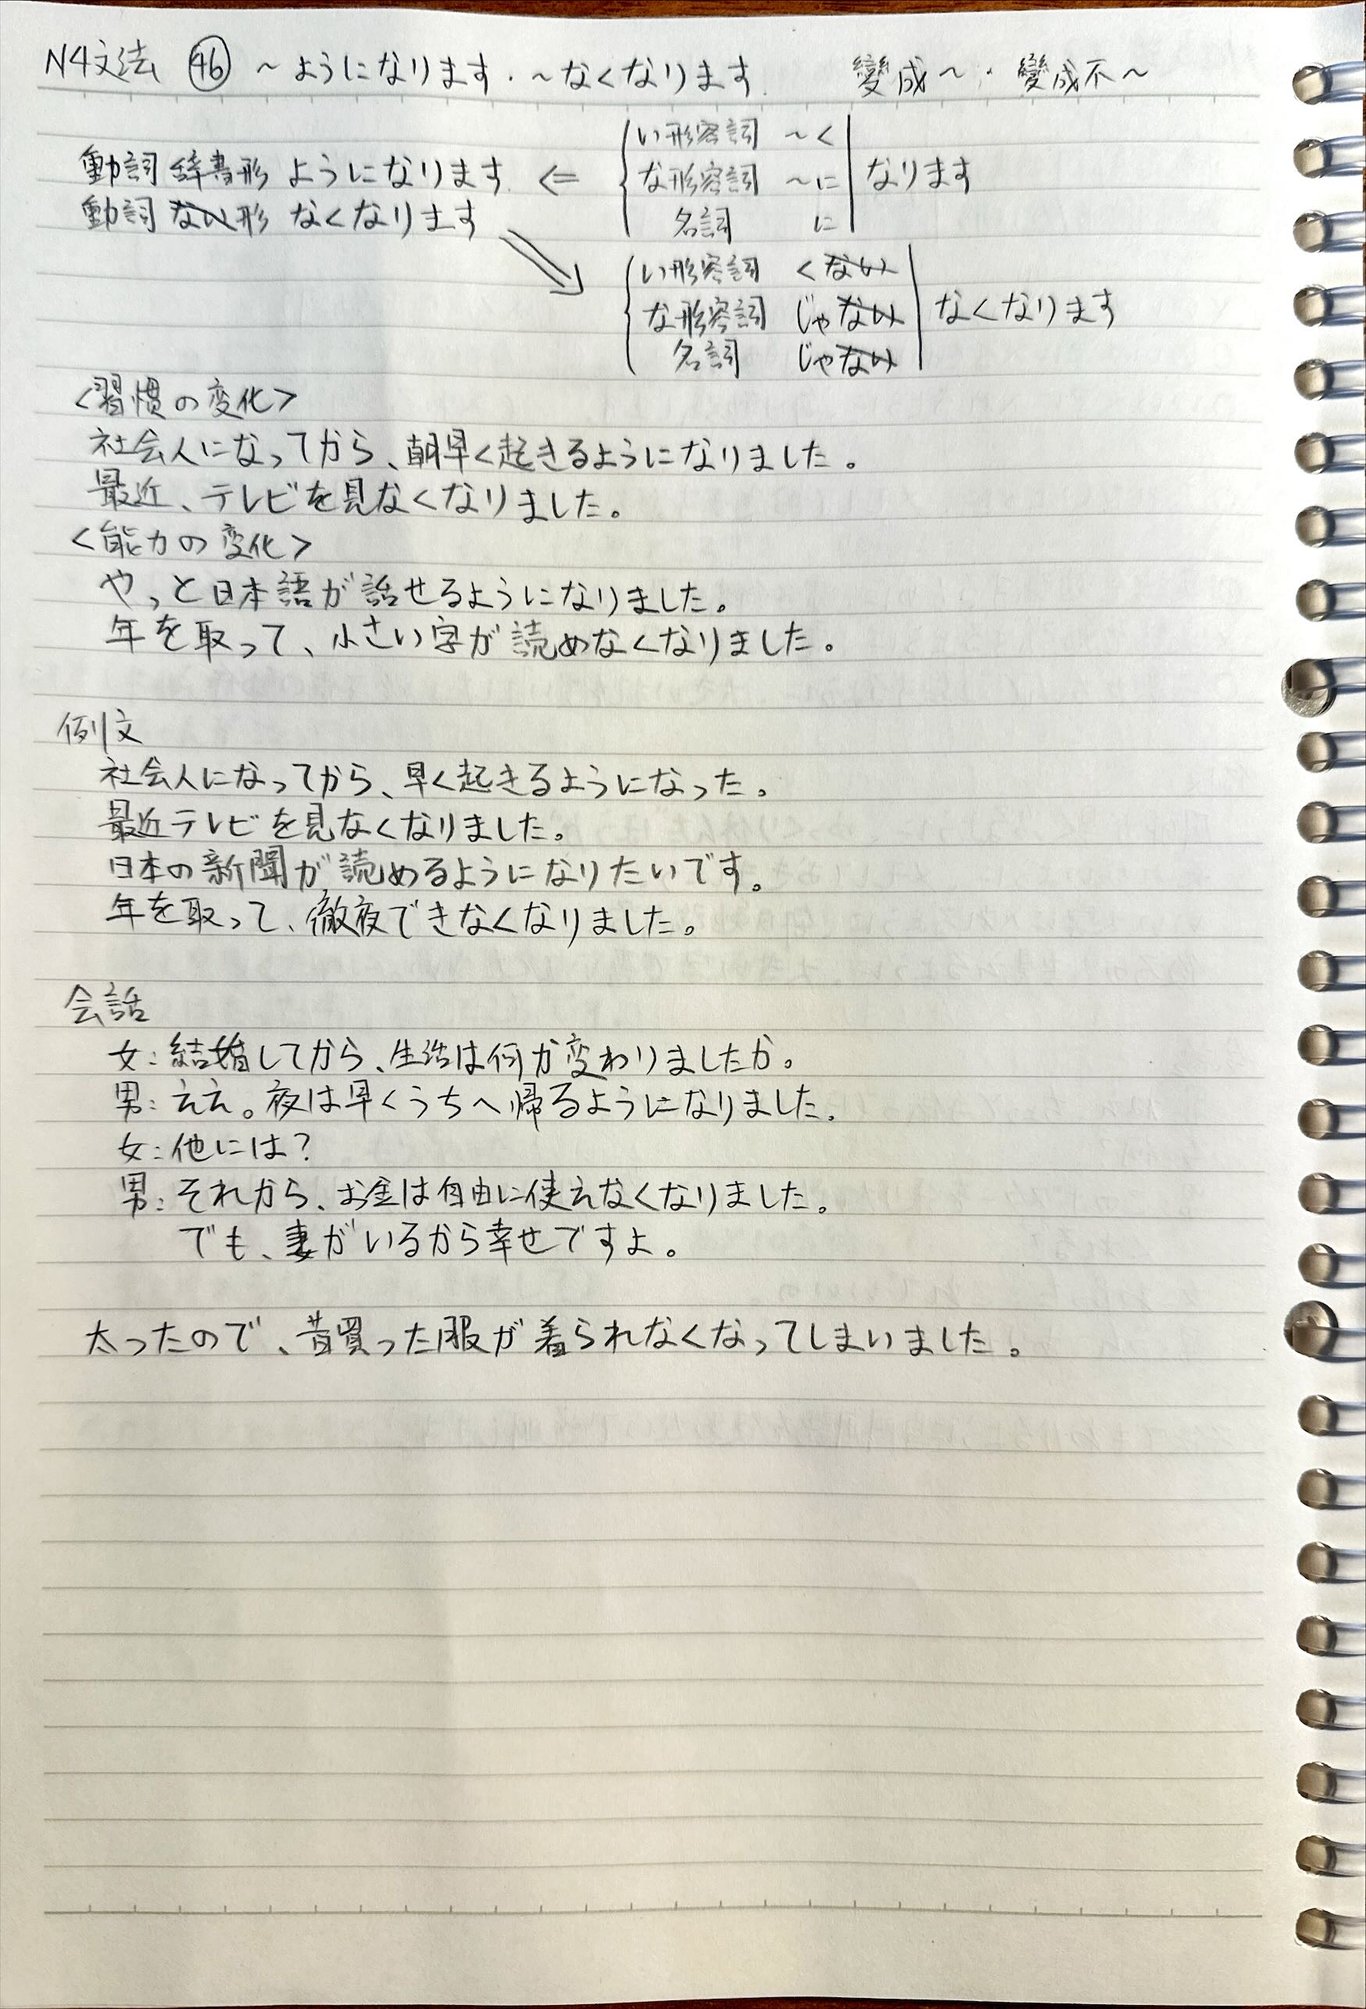 N4文法 ㊻ ～ようになります・～なくなります 變成～・變成不～
動詞 辞書形 ようになります ⇐ い形容詞 ～く
な形容詞 ～に なります
名詞 に
動詞 ない形 なくなります
い形容詞 くない
な形容詞 じゃない なくなります
名詞 じゃない
<習慣の変化>
社会人になってから、朝早く起きるようになりました。
最近、テレビを見なくなりました。
<能力の変化>
やっと日本語が話せるようになりました。
年を取って、小さい字が読めなくなりました。
例文
社会人になってから、早く起きるようになった。
最近テレビを見なくなりました。
日本の新聞が読めるようになりたいです。
年を取って、徹夜できなくなりました。
会話
女：結婚してから、生活は何か変わりましたか。
男：ええ。夜は早くうちへ帰るようになりました。
女：他には？
男：それから、お金は自由に使えなくなりました。
でも、妻がいるから幸せですよ。
太ったので、昔買った服が着られなくなってしまいました。